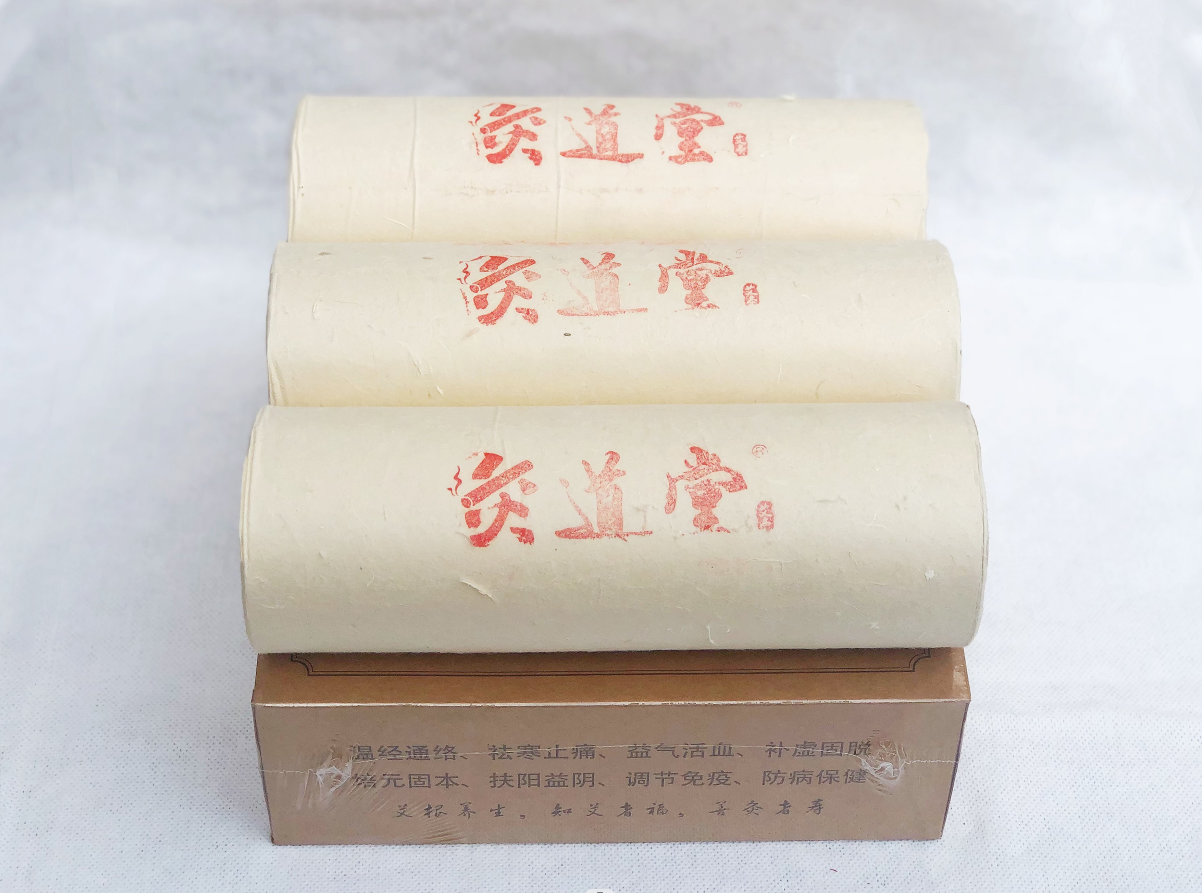 灸道堂
灸道堂
灸道堂®
温经通络、祛寒止痛、益气活血、补虚固脱
培元固本、扶阳益阴、调节免疫、防病保健
艾根养生，知艾者福，善灸者寿